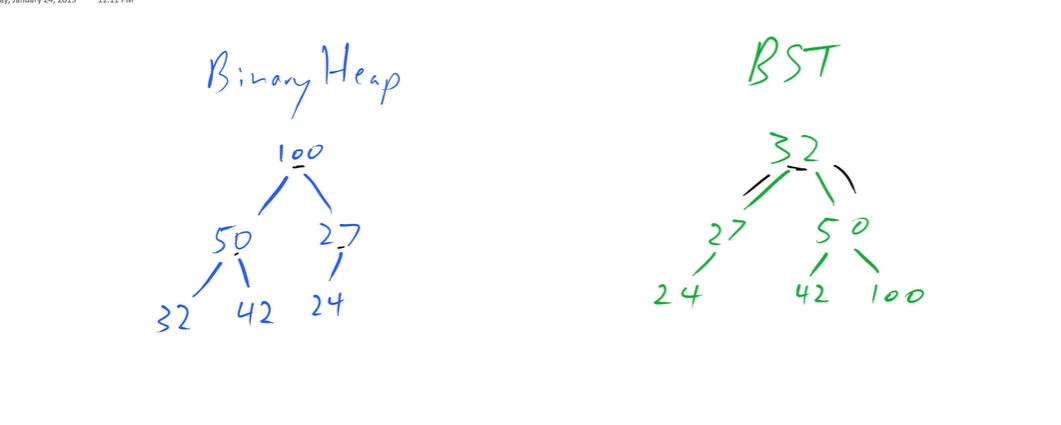 January 24, 2015 12:11 PM
Binary Heap
100
50 27
32 42 24
BST
32
27 50
24 42 100